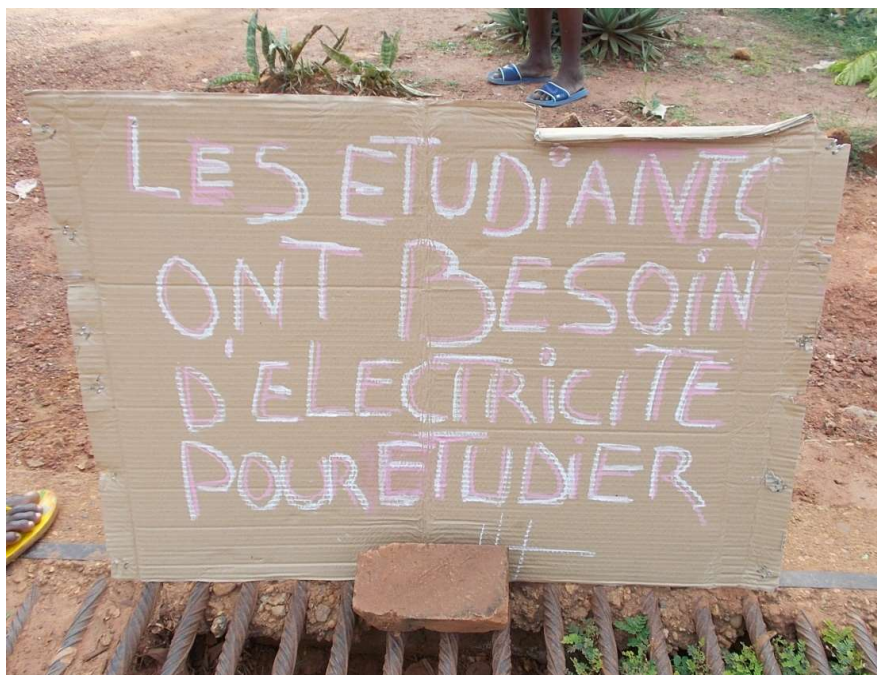 LES ETUDiANTS
ONT BESOiN
D'ELECTRiCiTE
POUR ETUDiER